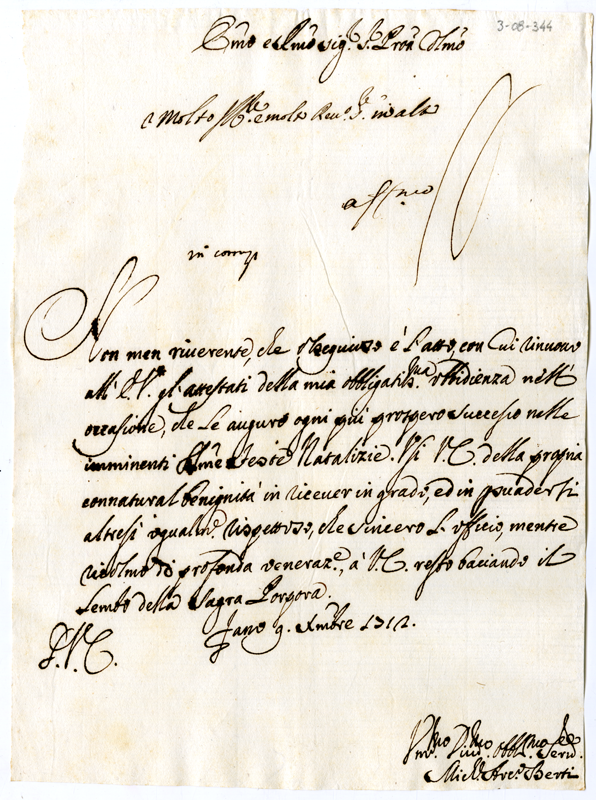 3-08-344
Emo e Rmo Sig.r S.r Pron Colmo
Molto Ill.re e molto Rev.o S.r
aff.mo
in comp
Non men riverente, che ossequioso è l'atto, con cui rinuovo
all' E.V. gl'attestati della mia obbligatis.ma obbidienza nell'
occasione, che le auguro ogni più prospero successo nelle
imminenti SSme Feste Natalizie. Usi V.E. della propria
connatural benignità in ricever in grado, ed in persuadersi
altresì ugualm.e rispettoso, che sincero l'officio, mentre
ricolmo di profonda veneraz.e, a V.E. resto baciando il
lembo della Sagra Porpora.
Fano 9. Xmbre 1712.
D.V.E.
Um.mo Div.mo Obbl.mo Serv.re
Mich. Berti